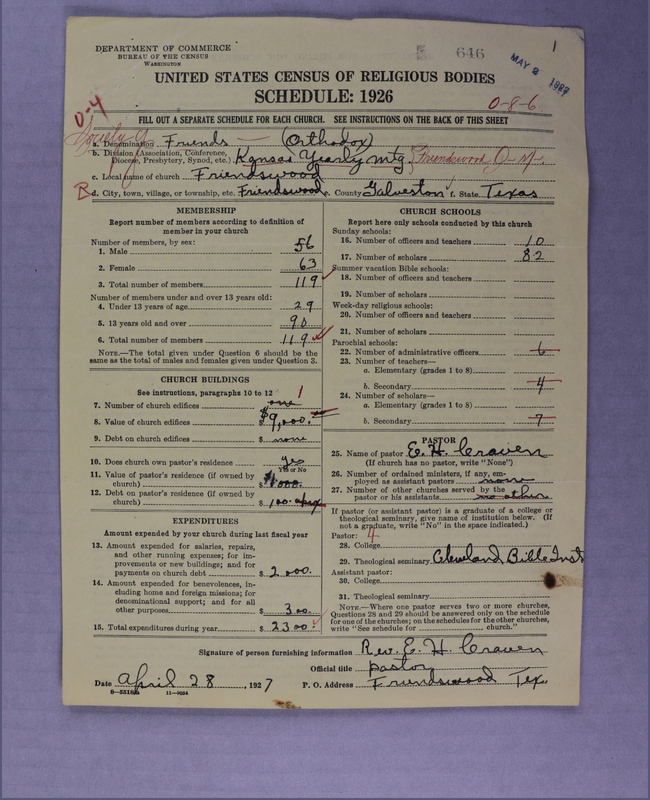 DEPARTMENT OF COMMERCE
BUREAU OF THE CENSUS
WASHINGTON
646
1
MAY 2 1927
UNITED STATES CENSUS OF RELIGIOUS BODIES
SCHEDULE: 1926
0-4
0-8-6
FILL OUT A SEPARATE SCHEDULE FOR EACH CHURCH. SEE INSTRUCTIONS ON THE BACK OF THIS SHEET
Society of
a. Denomination Friends (Orthodox)
b. Division (Association, Conference, Diocese, Presbytery, Synod, etc.) Kansas Yearly Mtg. Friendswood Q-M.
c. Local name of church Friendswood
R d. City, town, village, or township, etc. Friendswood e. County Galveston f. State Texas
MEMBERSHIP
Report number of members according to definition of
member in your church
Number of members, by sex:
1. Male 56
2. Female 63
3. Total number of members 119
Number of members under and over 13 years old:
4. Under 13 years of age 29
5. 13 years old and over 90
6. Total number of members 119
NOTE.—The total given under Question 6 should be the
same as the total of males and females given under Question 3.
CHURCH BUILDINGS
See instructions, paragraphs 10 to 12
1
7. Number of church edifices one
8. Value of church edifices $9,000.00
9. Debt on church edifices $ none
10. Does church own pastor's residence yes
Yes or No
11. Value of pastor's residence (if owned by
church) $1000.
12. Debt on pastor's residence (if owned by
church) $ 100. aprx
EXPENDITURES
Amount expended by your church during last fiscal year
13. Amount expended for salaries, repairs,
and other running expenses; for im-
provements or new buildings; and for
payments on church debt $ 2000.
14. Amount expended for benevolences, in-
cluding home and foreign missions; for
denominational support; and for all
other purposes $ 300.
15. Total expenditures during year $ 2300.
CHURCH SCHOOLS
Report here only schools conducted by this church
Sunday schools:
16. Number of officers and teachers 10
17. Number of scholars 82
Summer vacation Bible schools:
18. Number of officers and teachers
19. Number of scholars
Week-day religious schools:
20. Number of officers and teachers
21. Number of scholars
Parochial schools:
22. Number of administrative officers 6
23. Number of teachers—
a. Elementary (grades 1 to 8)
b. Secondary 4
24. Number of scholars—
a. Elementary (grades 1 to 8)
b. Secondary 7
PASTOR
25. Name of pastor E. H. Craven
(If church has no pastor, write "None")
26. Number of ordained ministers, if any, em-
ployed as assistant pastors none
27. Number of other churches served by the
pastor or his assistants no other
If pastor (or assistant pastor) is a graduate of a college or
theological seminary, give name of institution below. (If
not a graduate, write "No" in the space indicated.)
Pastor: 4
28. College
29. Theological seminary Cleveland Bible Inst
Assistant pastor:
30. College
31. Theological seminary
NOTE.—Where one pastor serves two or more churches,
Questions 28 and 29 should be answered only on the schedule
for one of the churches; on the schedules for the other churches,
write "See schedule for church."
Signature of person furnishing information Rev. E. H. Craven
Official title pastor
Date April 28, 1927 P. O. Address Friendswood Tex.
8-5518a 11-9084